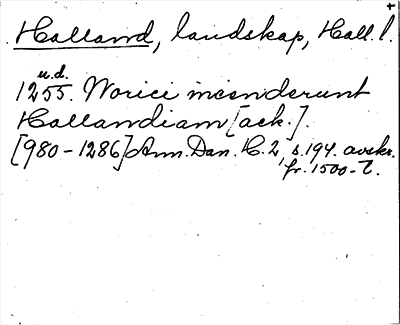 Halland, landskap, Hall. l.
u.d.
1255. Norici incenderunt
Hallandiam [ack.]
[980-1286] Ann. Dan. H. 2, s. 194. avskr.
fr. 1500-t.